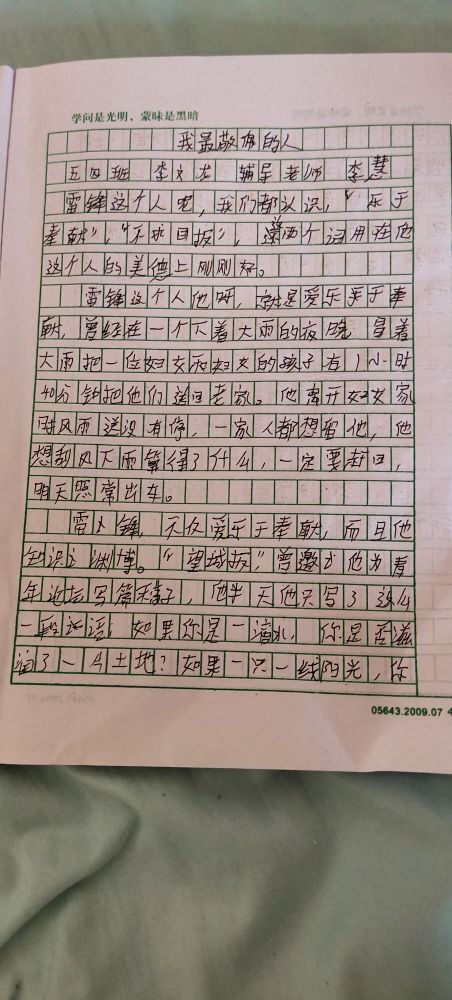 学问是光明，蒙昧是黑暗
我最敬佩的人
五四班 李文龙 辅导老师 李慧
雷锋这个人吧，我们都认识，"乐于
奉献"，"不求回报"，这两个词用在他
这个人的美德上刚刚好。
雷锋这个人他呀，就是爱乐于奉
献，曾经在一个下着大雨的夜晚 冒着
大雨把一位妇女和妇女的孩子有1小时
40分钟把他们送回老家。他离开妇女家
时风雨还没有停，一家人都想留他，他
想刮风下雨算得了什么，一定要赶回，
明天照常出车。
雷锋，不仅爱乐于奉献，而且他
知识渊博。"望城报"曾邀 他为青
年论坛写篇稿子，他半天他只写了这么
一段话：如果你是一滴水，你是否滋
润了一 土地？如果 一线阳光，你
05643.2009.07 4